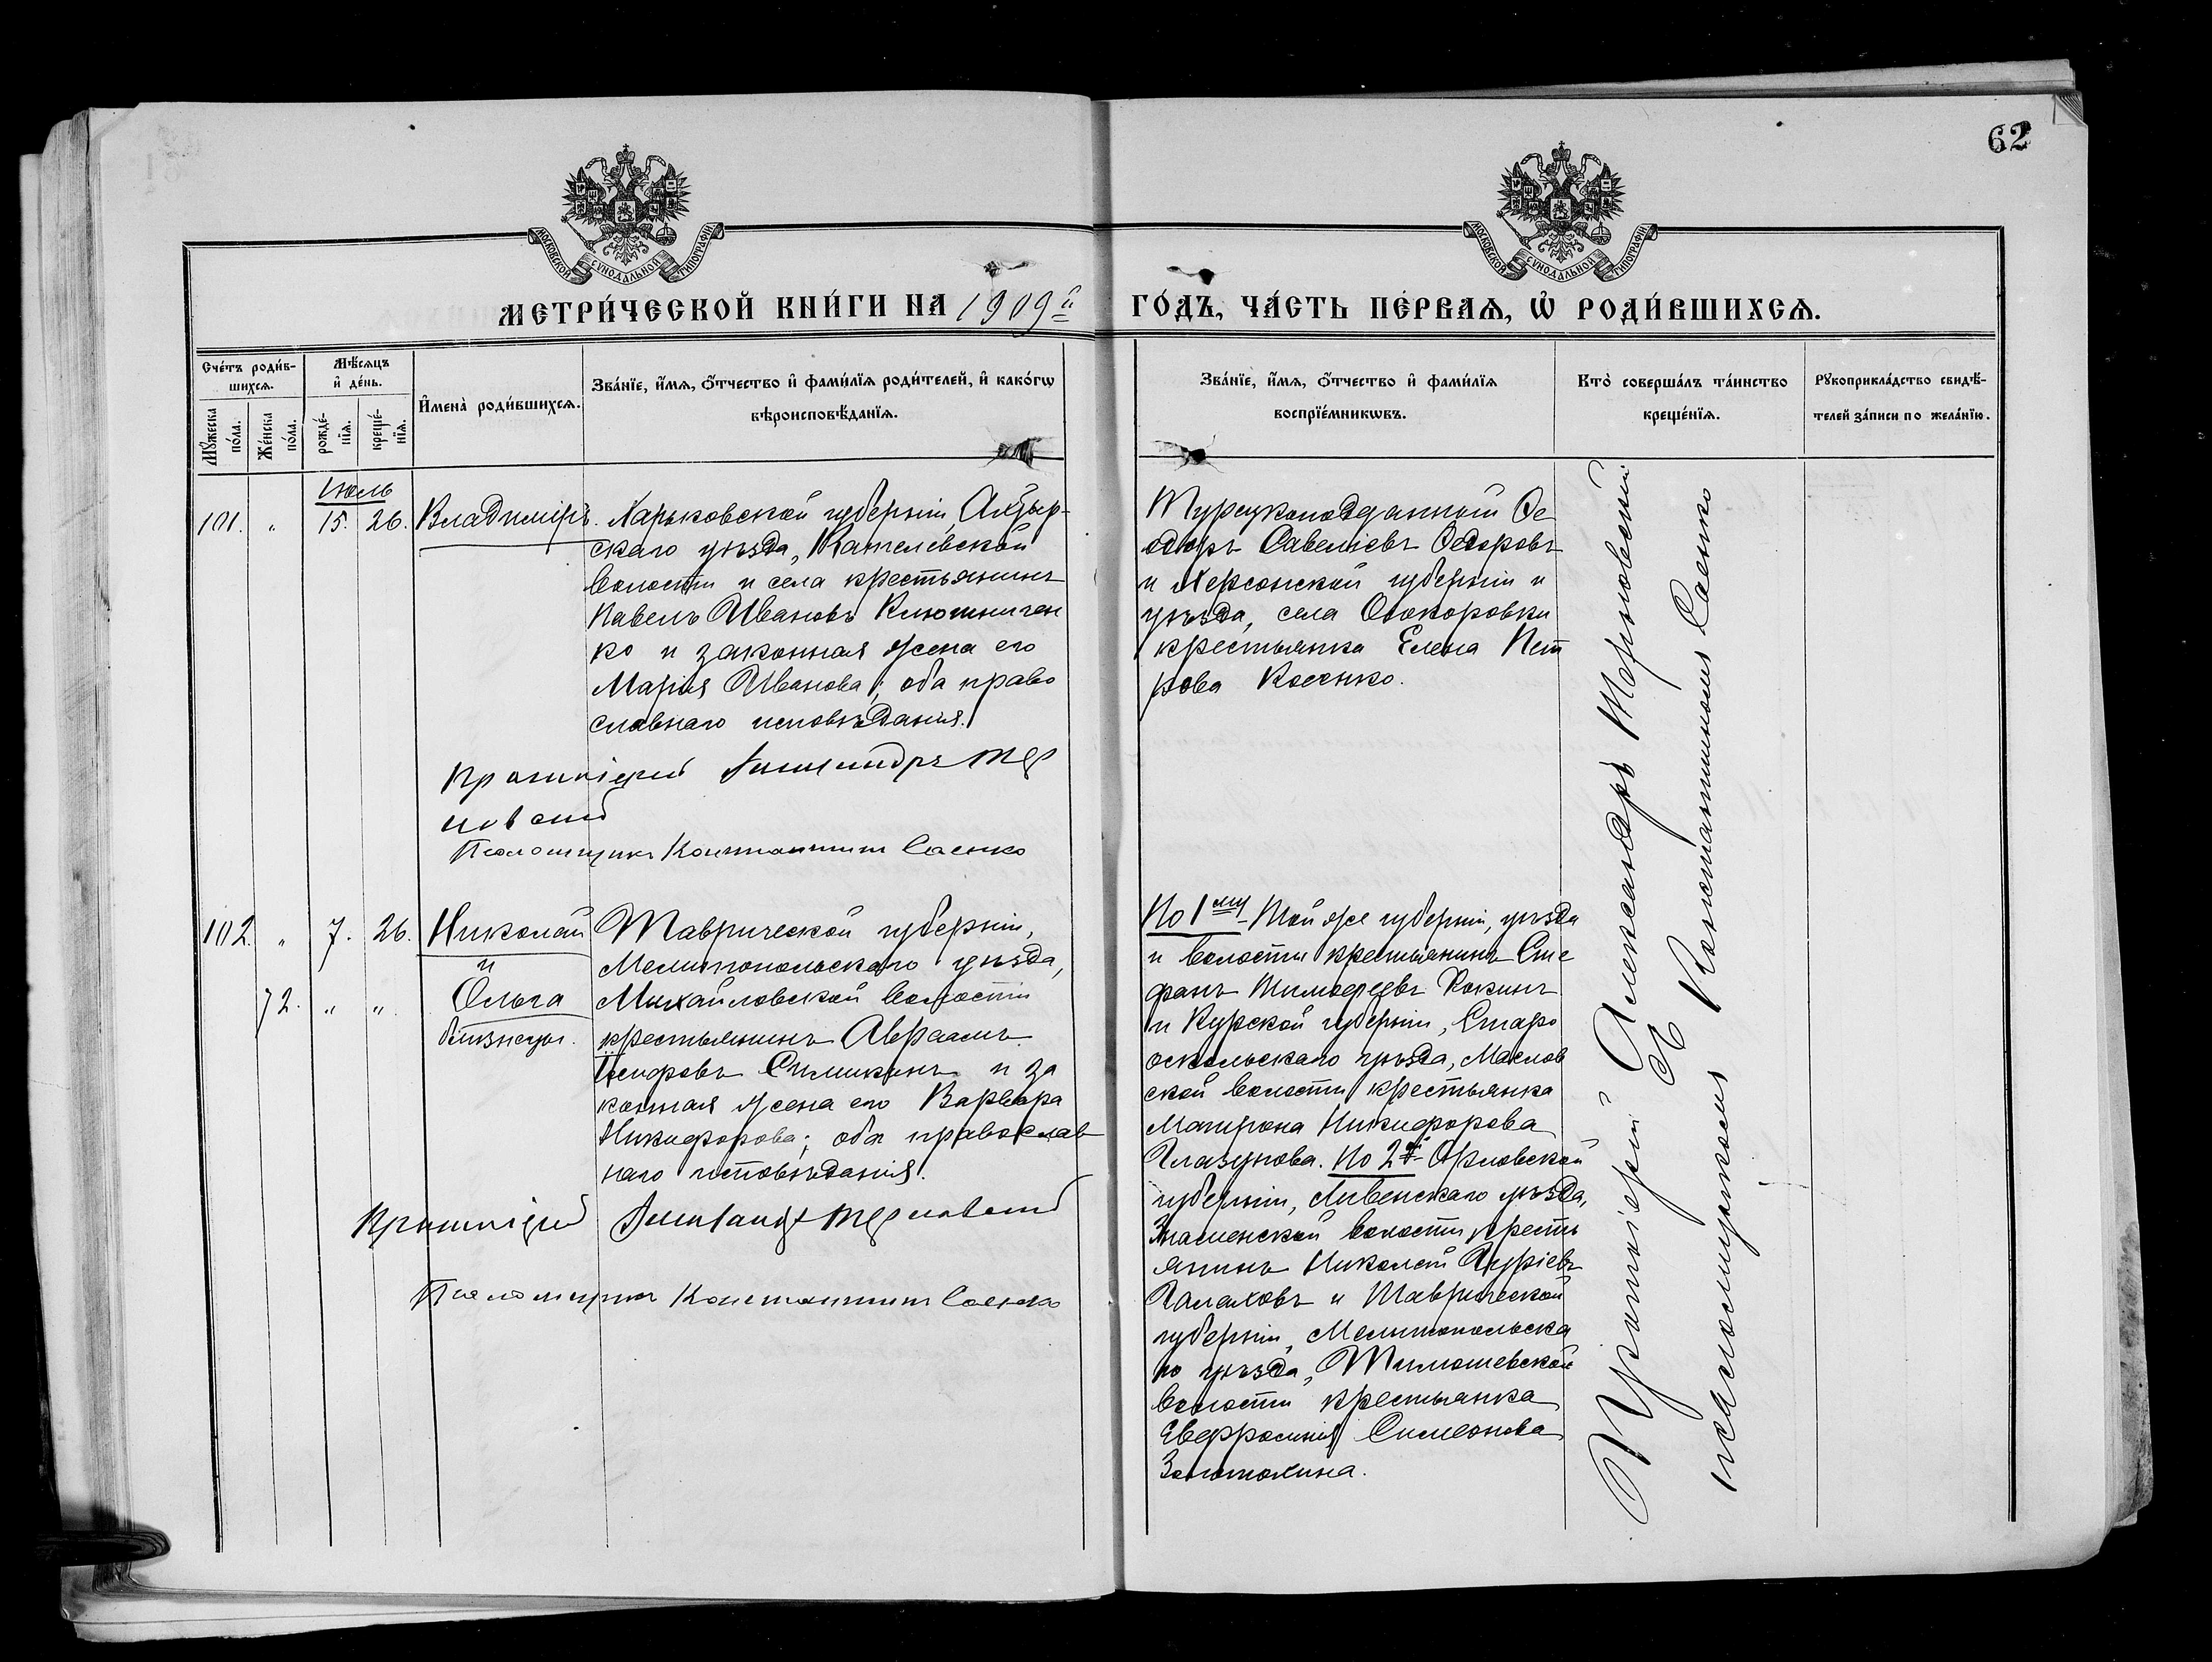 62
МОСКОВСКОЙ СУНОДАЛЬНОЙ ТИПОГРАФІИ
МОСКОВСКОЙ СУНОДАЛЬНОЙ ТИПОГРАФІИ
МЕТРИ́ЧЕСКОЙ КНИ́ГИ НА 1909й
ГО́ДЪ, ЧА́СТЬ ПЕ́РВАѦ, Ѽ РОДИ́ВШИХСѦ.
Сче́тъ роди́в-
шихсѧ.
Мꙋжеска
по́ла.
Же́нска
по́ла.
Мѣ́сѧцъ
и҆ де́нь.
рожде́-
нїѧ.
креще́-
нїѧ.
И҆мена̀ роди́вшихсѧ.
Зва́нїе, и҆́мѧ, ѻ҆́тчество и҆ фами́лїѧ роди́телей, и҆ како́гѡ
вѣроисповѣ́данїѧ.
Зва́нїе, и҆́мѧ, ѻ҆́тчество и҆ фами́лїѧ
воспрїе́мникѡвъ.
Кто̀ соверша́лъ та́инство
креще́нїѧ.
Рꙋкоприкла́дство свидѣ́-
телей за́писи по жела́нїю.
Іюль
101. " 15. 26. Владиміръ.
Харьковской губерніи, Ахтыр-
скаго уѣзда, Котелевской
волости и села крестьянинъ
Павелъ Ивановъ Ключничен
ко и законная жена его
Марія Иванова; оба право
славнаго исповѣданія.
Протоіерей Александръ Тер
новскій
Псаломщикъ Константинъ Саенко
Турецкоподданный Ѳе
одоръ Савеліевъ Ѳедоровъ
и Херсонской губерніи и
уѣзда, села
крестьянка Елена Пет
рова Косенко.
102. " 7. 26. Николай
и
72. " " Ольга
близнецы.
Таврической губерніи,
Мелитопольскаго уѣзда,
Михайловской волости
крестьянинъ Авраамъ
Іосифовъ и за
конная жена его Варвара
Никифорова; оба православ
наго исповѣданія.
Протоіерей Александръ Терновскій
Псаломщикъ Константинъ Саенко
По 1му Той же губерніи, уѣзда
и волости крестьянинъ Сте
фанъ Тимофеевъ Кокинъ
и Курской губерніи, Старо
оскольскаго уѣзда, Маслов
ской волости крестьянка
Матрона Никифорова
Глазунова. По 2й Орловской
губерніи, Ливенскаго уѣзда,
Знаменской волости кресть
янинъ Николай Гуріевъ
Галаховъ и Таврической
губерніи, Мелитопольска
го уѣзда, Тимошевской
волости крестьянка
Евфросинія Симеонова
Золотохина.
Протоіерей Александръ Терновскій
съ
псаломщикомъ Константиномъ Саенко